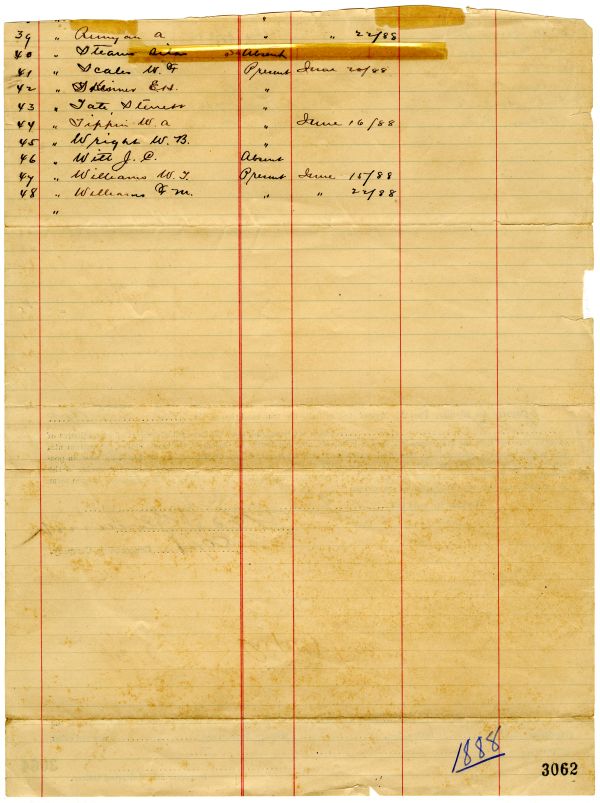 "
39 " Runyan A " " 22/88
40 " Stearns Absent
41 " Scales W. F Present June 20/88
42 " Skinner E.H. "
43 " Tate, "
44 " Tippin W. A " June 16/88
45 " Wright W. B. "
46 " Witt J. C. Absent
47 " Williams W. T. Present June 15/88
48 " Williams F. M. " " 22/88
"
1888
3062